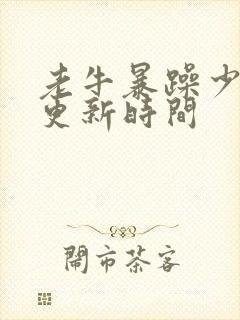 老牛暴躁少
更新時間
鬧市茶客